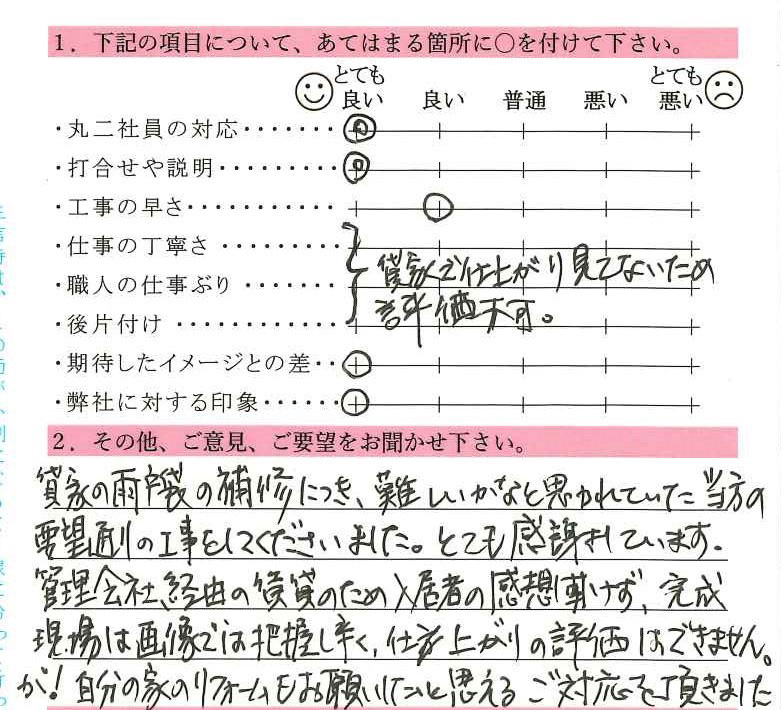 1. 下記の項目について、あてはまる箇所に○を付けて下さい。
とても良い 良い 普通 悪い とても悪い
・丸二社員の対応・・・・・・・
・打合せや説明・・・・・・・・・
・工事の早さ・・・・・・・・・・・
・仕事の丁寧さ・・・・・・・・
・職人の仕事ぶり・・・・・・・
・後片付け・・・・・・・・・・・・
貸家で仕上がり見てないため
評価不可。
・期待したイメージとの差・・
・弊社に対する印象・・・・・・
2. その他、ご意見、ご要望をお聞かせ下さい。
貸家の雨戸袋の補修につき、難しいかなと思われていた当方の
要望通りの工事をしてくださいました。とても感謝しています。
管理会社経由の賃貸のため入居者の感想聞けず、完成
現場は画像では把握し辛く、仕上がりの評価はできません。
が!自分の家のリフォームもお願いしたいと思えるご対応を頂きました